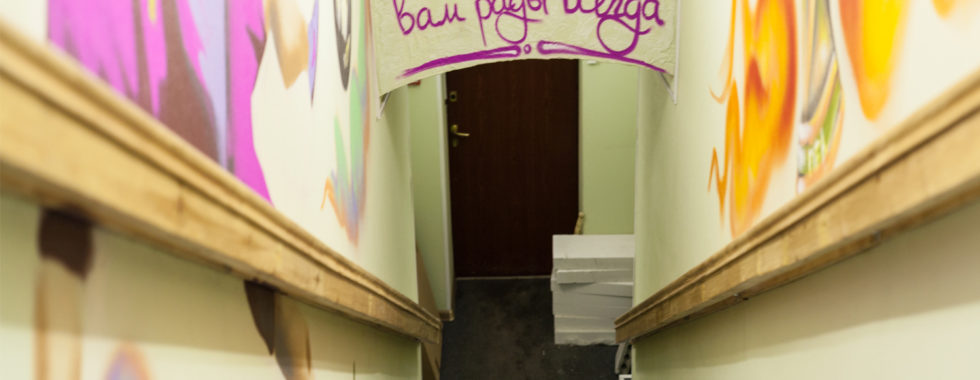 вам рады всегда